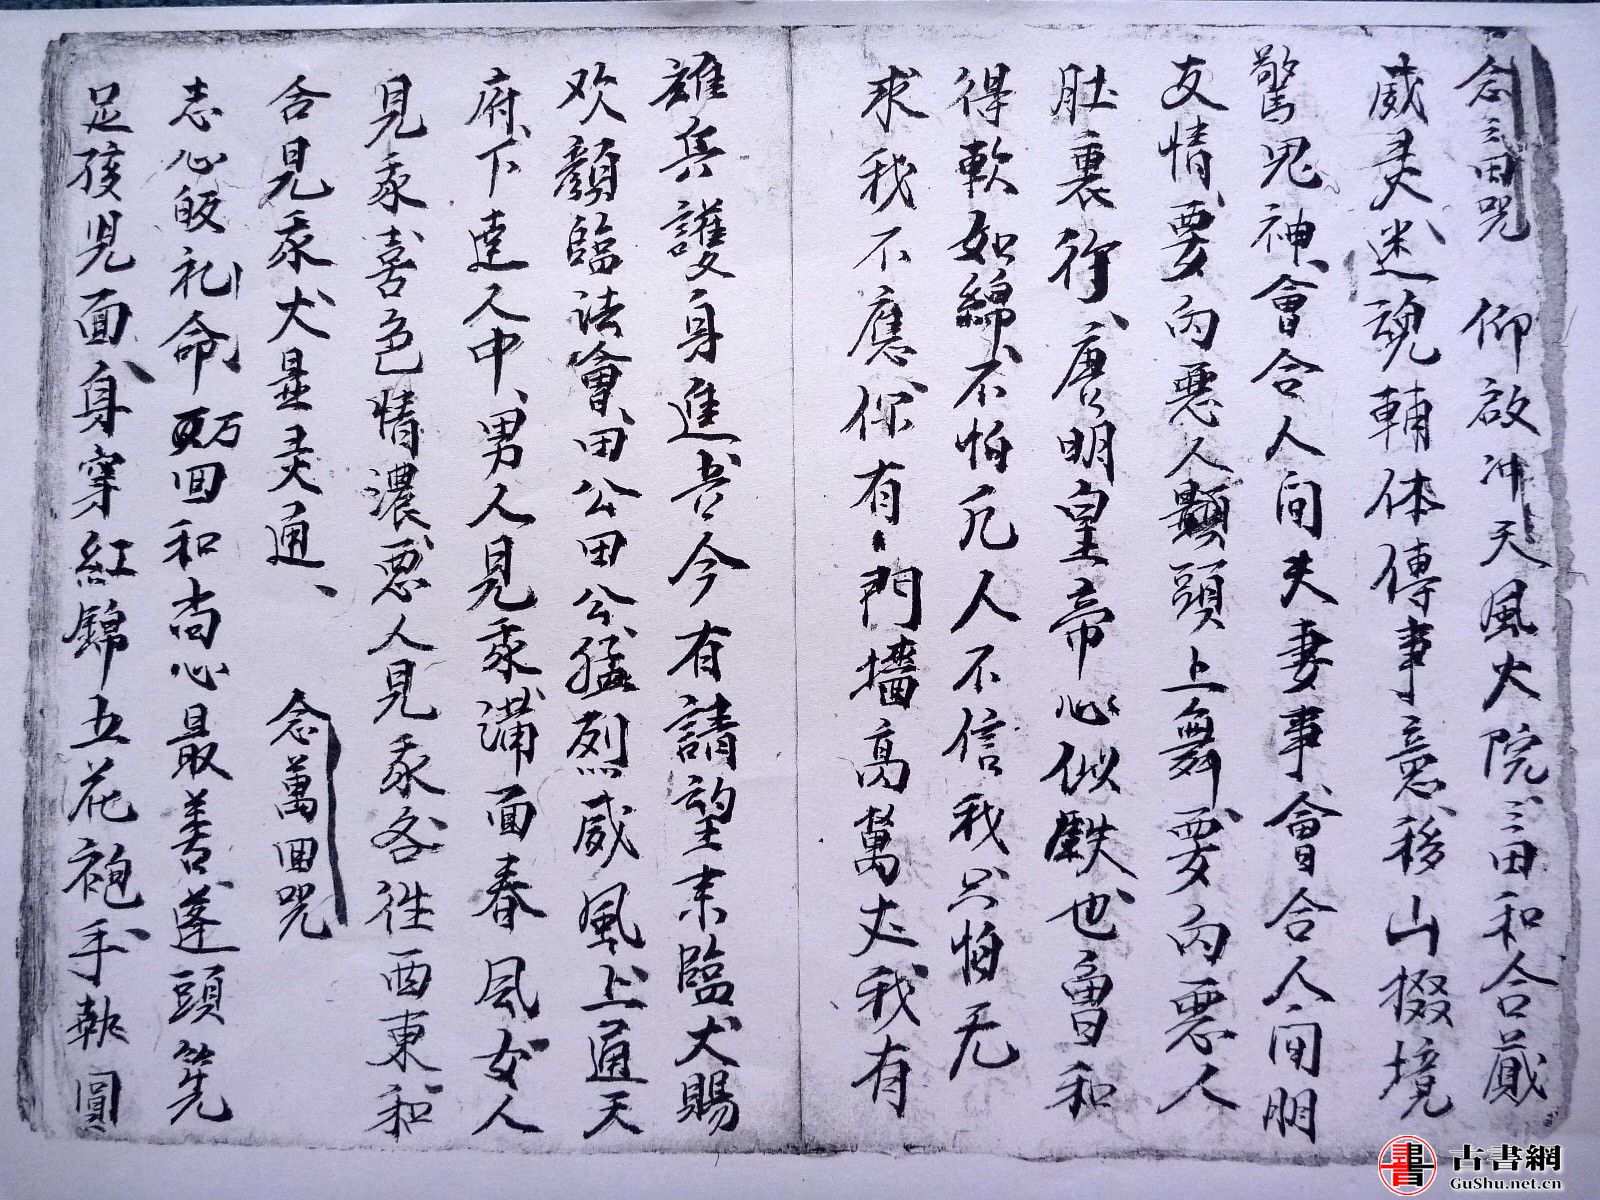 念三田咒 仰啟冲天風火院三田和合藏
威灵迷魂輔体傳事意移山掇境
驚鬼神會合人间夫妻事會合人间朋
友情要内惡人頭上舞要内惡人
肚裏行唐明皇帝心似鉄也會和
得軟如綿不怕凢人不信我只怕无
求我不應你有門墻高萬丈我有
雄兵護身進吾今有請望来臨犬賜
欢顔臨法會田公田公猛烈威風上通天
府下達人中男人見我滿面春风女人
見我喜色情濃惡人見我各徃西東和
合見我犬显灵通 念萬回咒
志心皈礼命万回和尚心最善蓬頭筅
足孩児面身穿紅錦五花袍手執圓
古書網
GuShu.net.cn